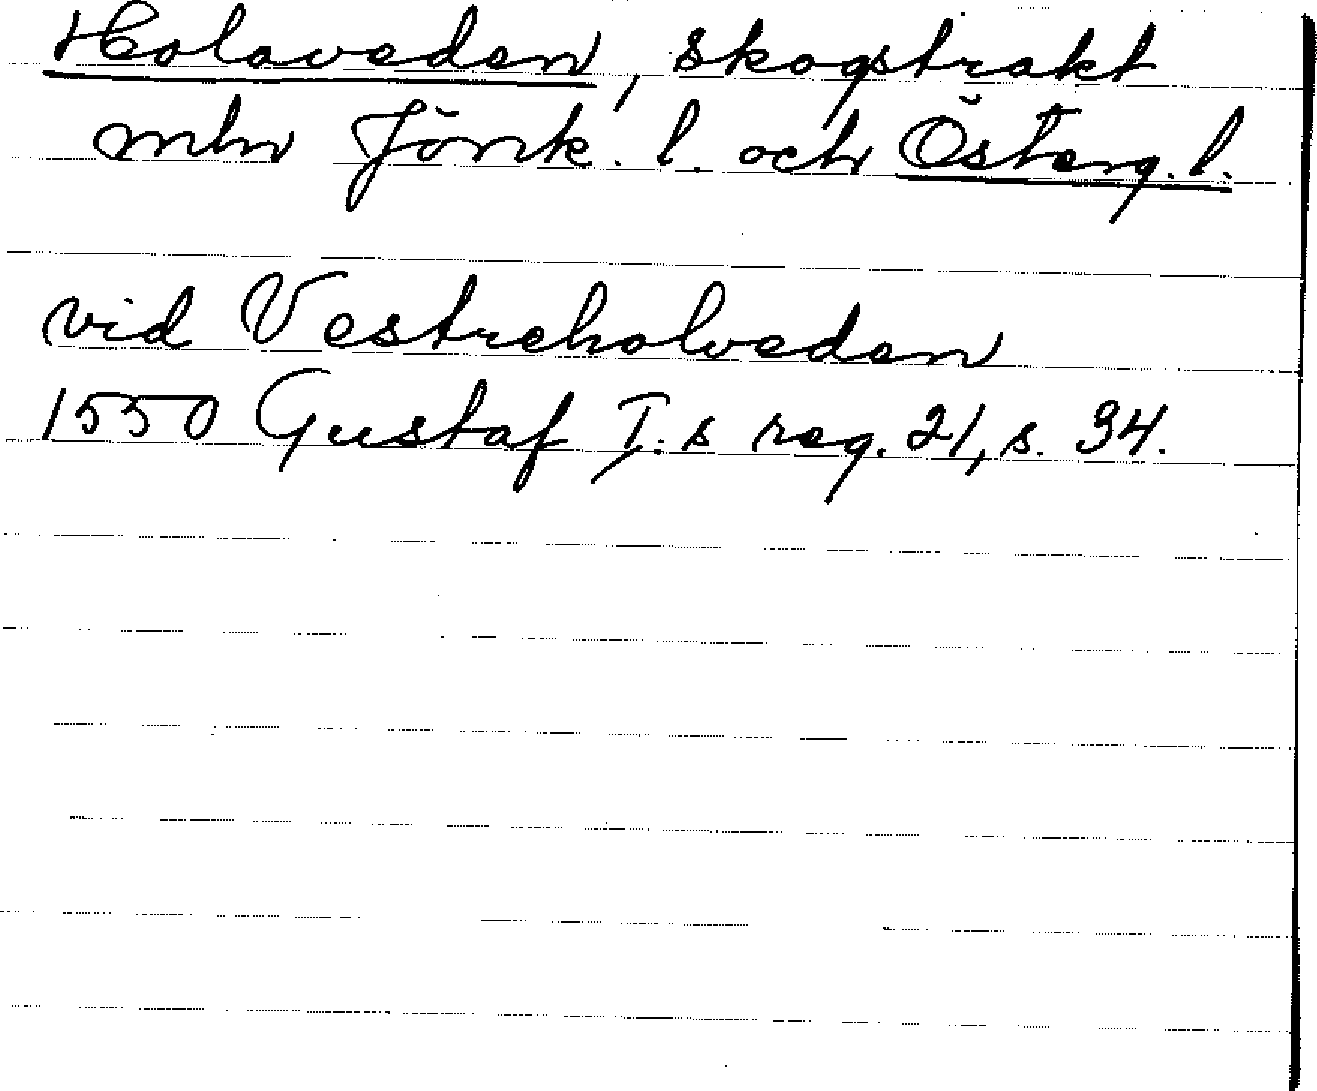 Holaveden, skogstrakt
mln Jönk. l. och Österg. l.
vid Vestreholveden
1550 Gustaf I:s reg. 21, s. 34.